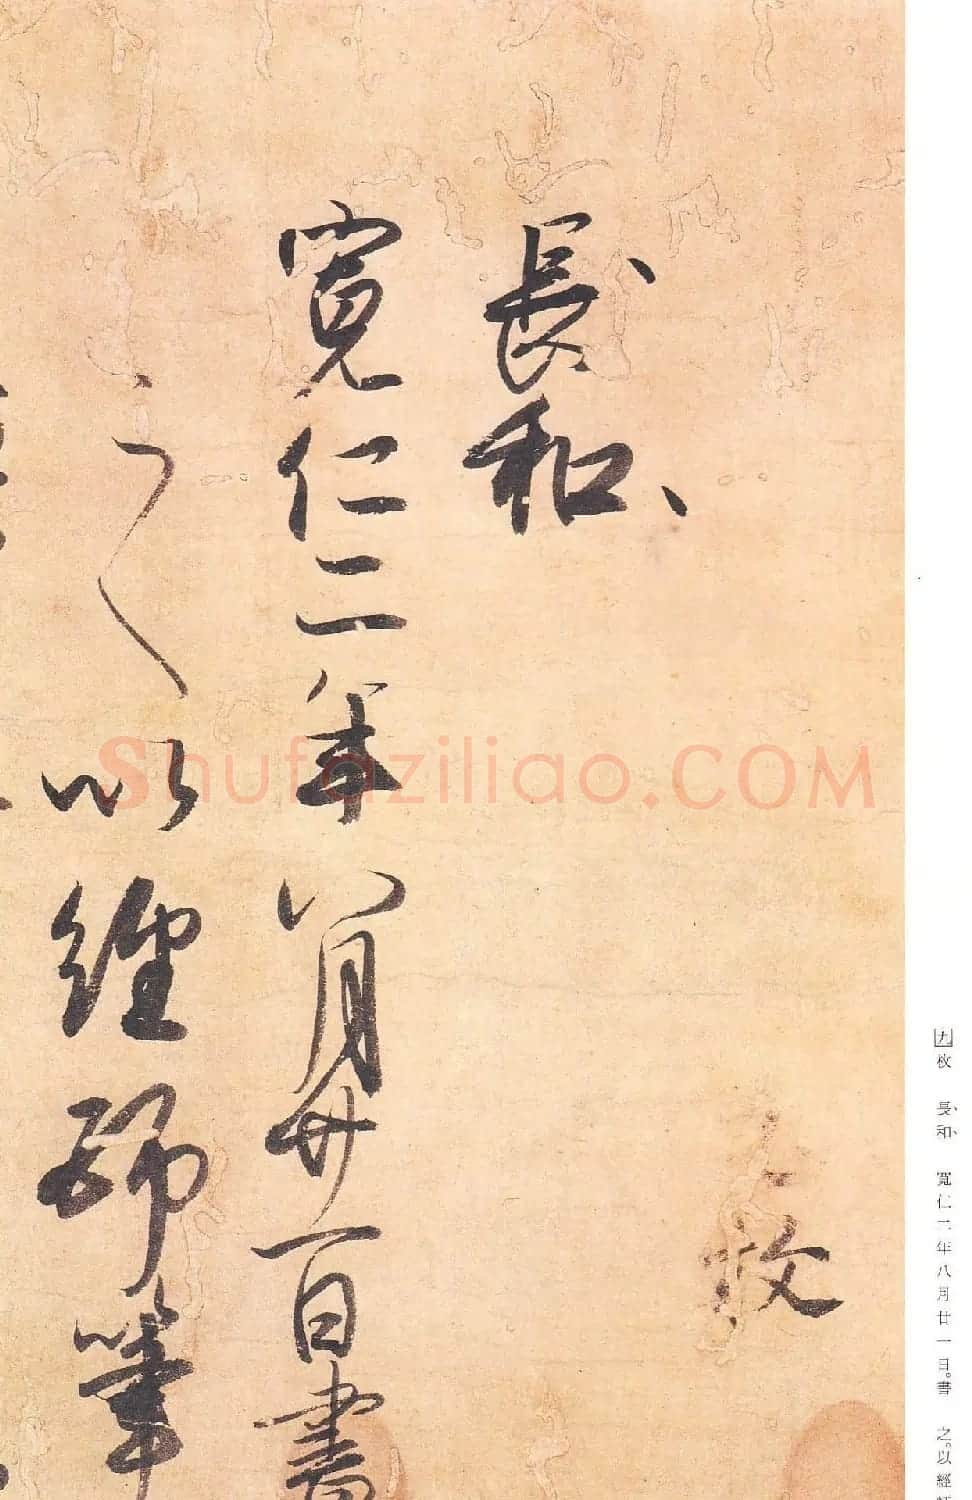 九枚 長和 寛仁二年八月廿一日。書 之。以經
枚
長和
寛仁二年八月廿一日書
之以經師筆
Shufaziliao.COM